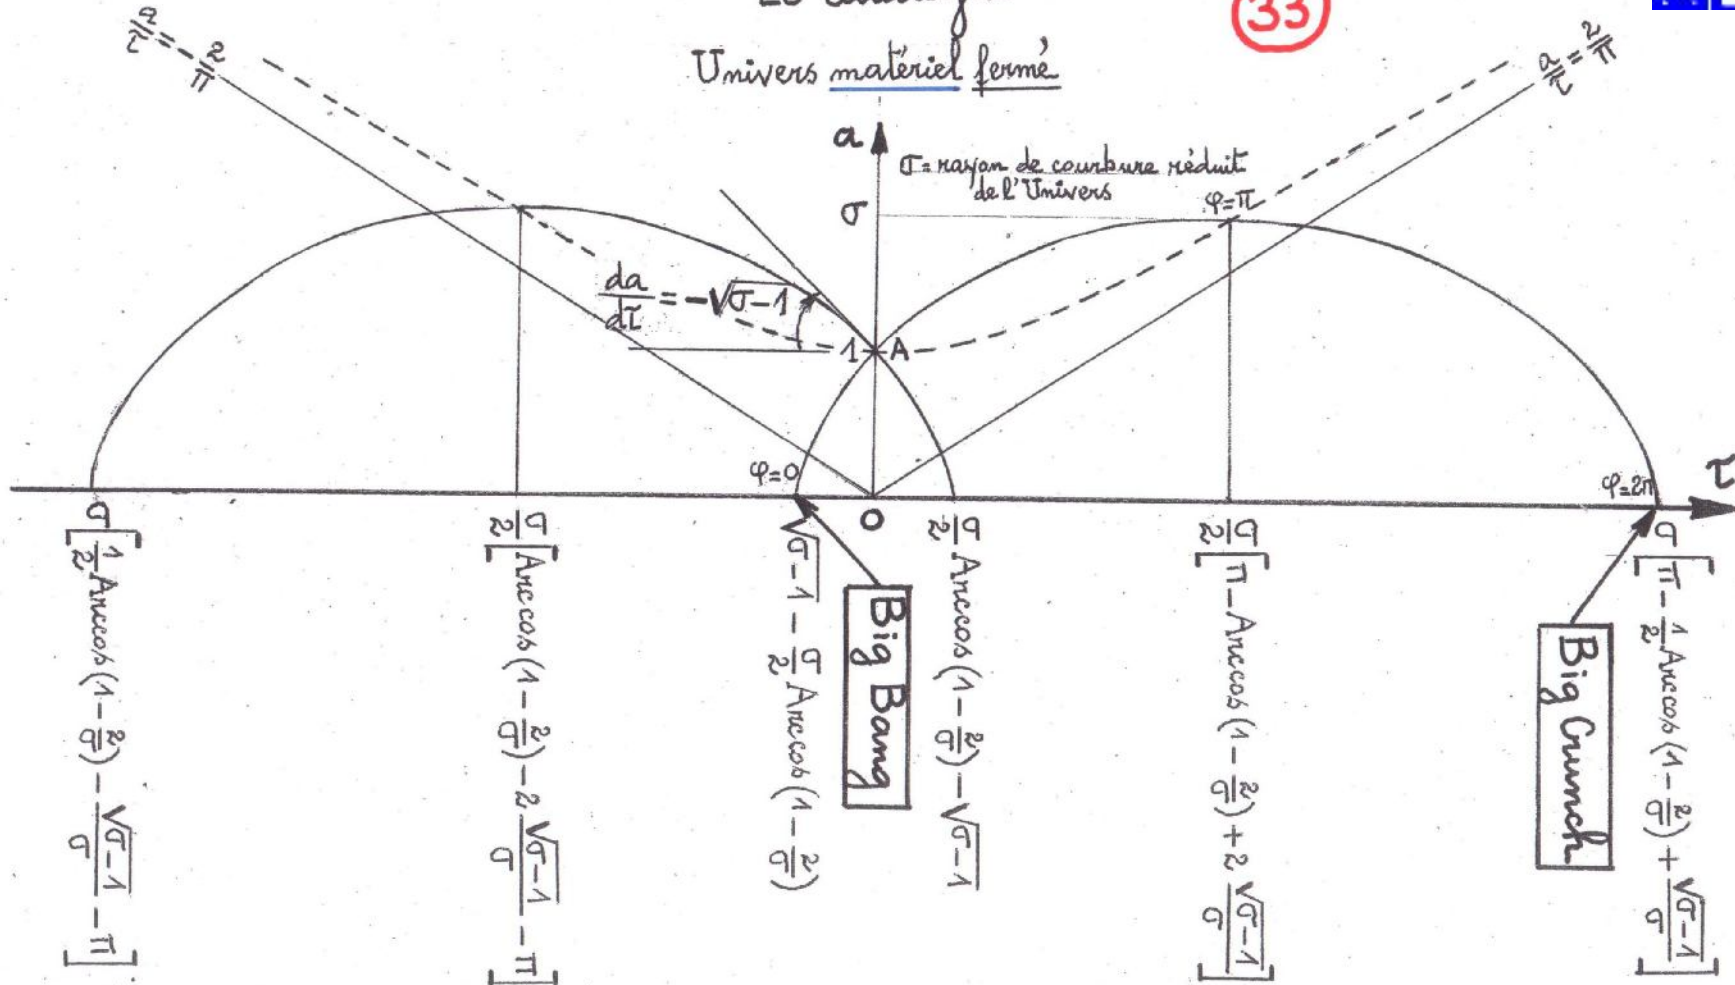 33
Univers matériel fermé
a/τ = -2/π
a/τ = 2/π
a
σ = rayon de courbure réduit
de l'Univers
σ
φ=π
da/dτ = -√σ-1
1
A
φ=0
O
φ=2π
τ
σ[1/2 Arccos(1-2/σ) - √σ-1/σ - π]
σ/2[Arccos(1-2/σ) - 2√σ-1/σ - π]
√σ-1 - σ/2 Arccos(1-2/σ)
Big Bang
σ/2 Arccos(1-2/σ) - √σ-1
σ/2[π - Arccos(1-2/σ) + 2√σ-1/σ]
Big Crunch
σ[π - 1/2 Arccos(1-2/σ) + √σ-1/σ]